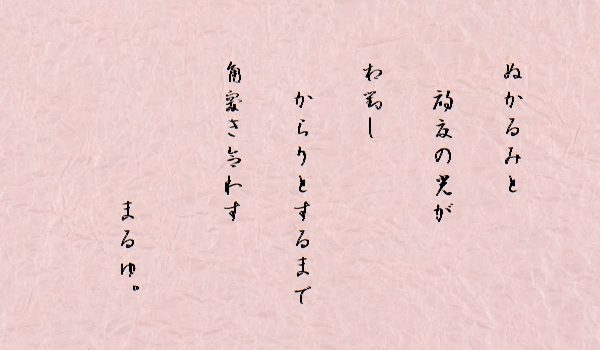 ぬかるみと
の光が
相対し
からりとするまで
角突き合わす
まるゆ。